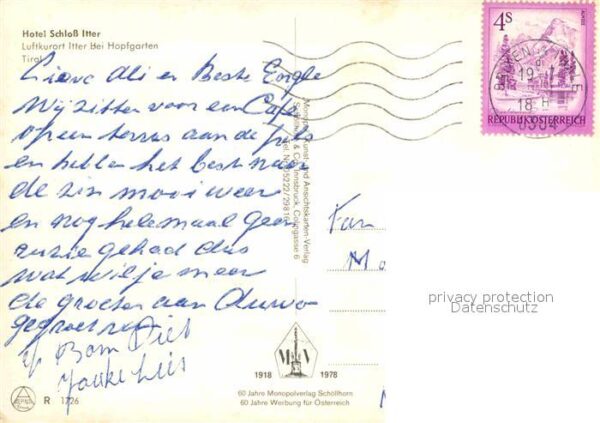 Hotel Schloß Itter
Luftkurort Itter Bei Hopfgarten
Tirol
Lieve Ali en Beste
Wij zitten voor een Café
op een terras aan de
en hebben het best naar
de zin mooi weer
en nog helemaal geen
ruzie gehad dus
wat wil je meer
de groeten aan
Bom Piet
Fam
Mo
4S
REPUBLIK ÖSTERREICH
19
18
6364
Monopol Kunst und Ansichtskarten-Verlag
Schöllhorn & Co. Innsbruck, Colingasse 6
Tel. Nr. 05222/29816
privacy protection
Datenschutz
M V
1918 1978
60 Jahre Monopolverlag Schöllhorn
60 Jahre Werbung für Österreich
R 1726